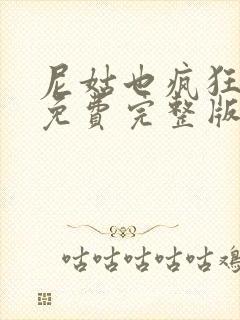 尼姑也疯狂
免費完整版
咕咕咕咕咕鸡